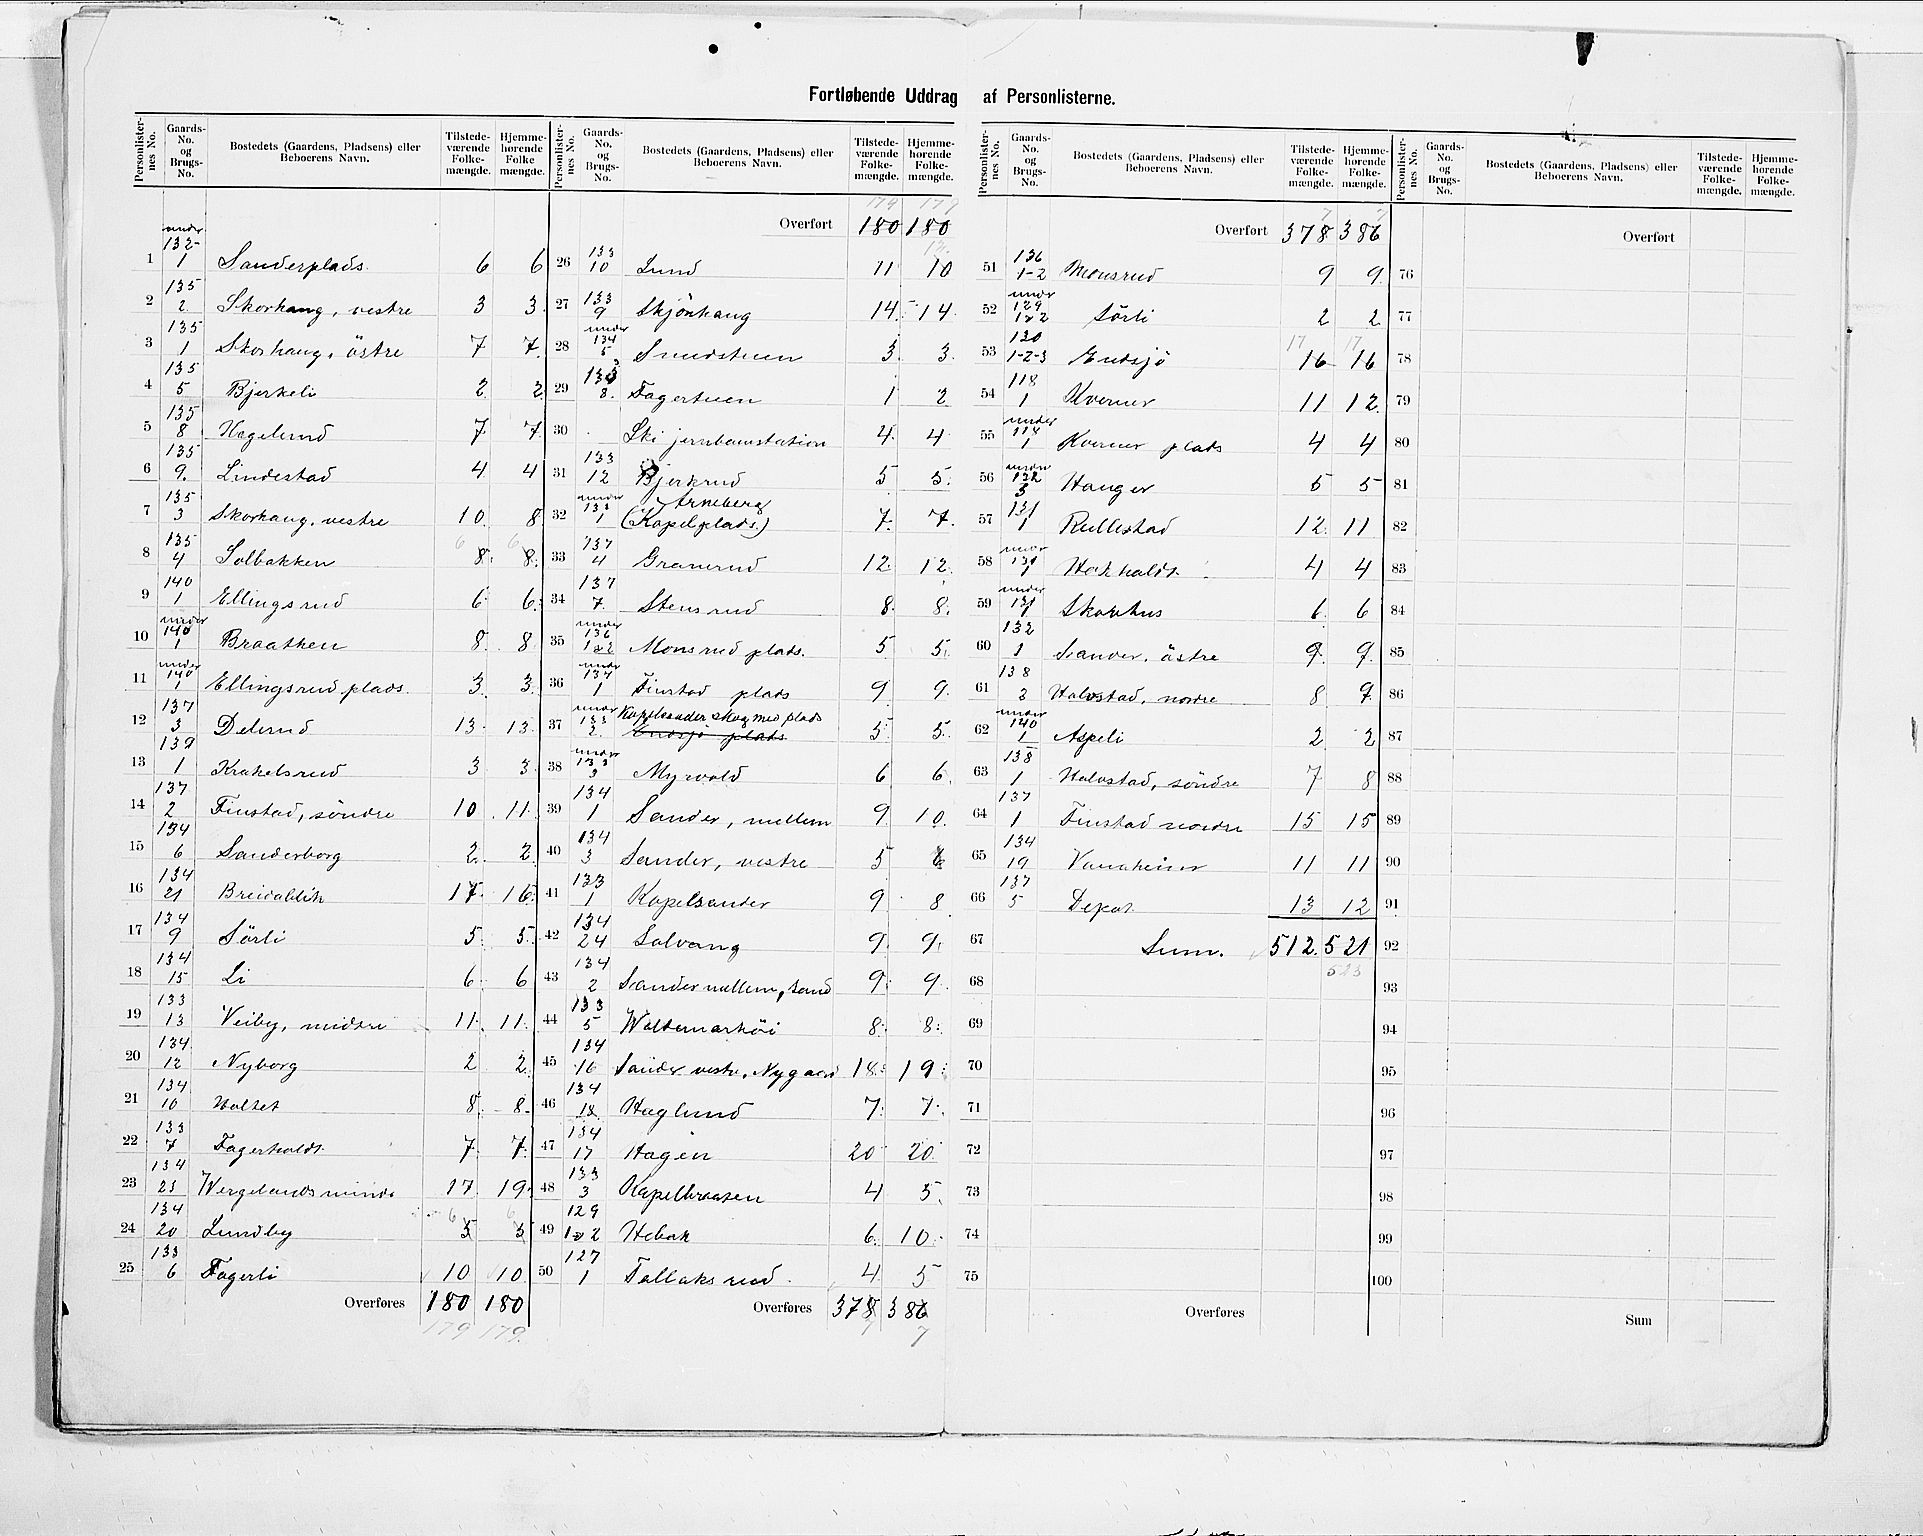 Fortløbende Uddrag af Personlisterne.
Personlister-nes No. Gaards-No. og Brugs-No. Bostedets (Gaardens, Pladsens) eller Beboerens Navn. Tilstede-værende Folke-mængde. Hjemme-hørende Folke mængde.
under 132
1 1 Sanderplads 6 6
135
2 2 Skorhaug, vestre 3 3
135
3 1 Skorhaug, östre 7 7
135
4 5 Bjerkeli 2 2
135
5 8 Hagelund 7 7
135
6 9 Lindestad 4 4
135
7 3 Skorhaug, vestre 10 8
135
8 4 Solbakken 8 8
140
9 1 Ellingsrud 6 6
under 140
10 1 Braathen 8 8
under 140
11 1 Ellingsrud plads. 3 3
137
12 3 Delerud 13 13
139
13 1 Krakelsrud 3 3
137
14 2 Finstad, söndre 10 11
134
15 6 Sanderborg 2 2
134
16 21 Breidablik 17 16
134
17 9 Sörli 5 5
134
18 15 Li 6 6
133
19 13 Veiby, midtre 11 11
134
20 12 Nyborg 2 2
134
21 10 Holtet 8 8
133
22 7 Fagerholdt 7 7
134
23 23 Wergelandsminde 17 19
134
24 20 Lundby 5 5
133
25 6 Fagerli 10 10
Overføres 180 180
179 179
Personlister-nes No. Gaards-No. og Brugs-No. Bostedets (Gaardens, Pladsens) eller Beboerens Navn. Tilstede-værende Folke-mængde. Hjemme-hørende Folke-mængde.
179 179
Overført 180 180
133
26 10 Lund 11 10
133
27 9 Skjönhaug 14 14
under 134
28 5 Smedstuen 3 3
133
29 8 Fagertuen 1 2
30 Ski jernbanestation 4 4
133
31 12 Bjerkrud 5 5
under 133 Arneberg
32 1 (Kapelplads.) 7 7
137
33 4 Granerud 12 12
137
34 7 Stensrud 8 8
under 136
35 1 2 Monsrud plads. 5 5
under 137
36 1 Finstad plads 9 9
under 133 Kapelsander skog med plads
37 2 Endsjö plads 5 5
under 133
38 3 Myrvold 6 6
134
39 1 Sander, mellem 9 10
134
40 3 Sander, vestre 5 6
133
41 1 Kapelsander 9 8
134
42 24 Solvang 9 9
134
43 2 Sander mellem, sand 9 9
133
44 5 Woldemarhöi 8 8
134
45 16 Sander vestre, Nygaard 18 19
134
46 18 Haglund 7 7
134
47 17 Hagen 20 20
133
48 3 Kapelbraaten 4 5
129
49 1 2 Hebæk 6 10
127
50 1 Tallaksrud 4 5
Overføres 378 386
7 7
Personlister-nes No. Gaards-No. og Brugs-No. Bostedets (Gaardens, Pladsens) eller Beboerens Navn. Tilstede-værende Folke-mængde. Hjemme-hørende Folke-mængde.
7 7
Overført 378 386
136
51 1-2 Monsrud 9 9
under 129
52 1 2 Sörli 2 2
130 17 17
53 1-2-3 Endsjö 16 16
118
54 1 Kverner 11 12
under 118
55 1 Kverner plads 4 4
under 132
56 3 Hauger 5 5
131
57 1 Rullestad 12 11
under 131
58 1 Holtet 4 4
under 131
59 1 Skovhus 6 6
132
60 1 Sander, östre 9 9
138
61 2 Halvstad, nordre 8 9
under 140
62 1 Aspeli 2 2
138
63 1 Halvstad, söndre 7 8
137
64 1 Finstad nordre 15 15
134
65 19 Vanaheim 11 11
137
66 5 Depot 13 12
67 Sum. 512 521
523
68
69
70
71
72
73
74
75
Overføres
Personlister-nes No. Gaards-No. og Brugs-No. Bostedets (Gaardens, Pladsens) eller Beboerens Navn. Tilstede-værende Folke-mængde. Hjemme-hørende Folke-mængde.
Overført
76
77
78
79
80
81
82
83
84
85
86
87
88
89
90
91
92
93
94
95
96
97
98
99
100
Sum